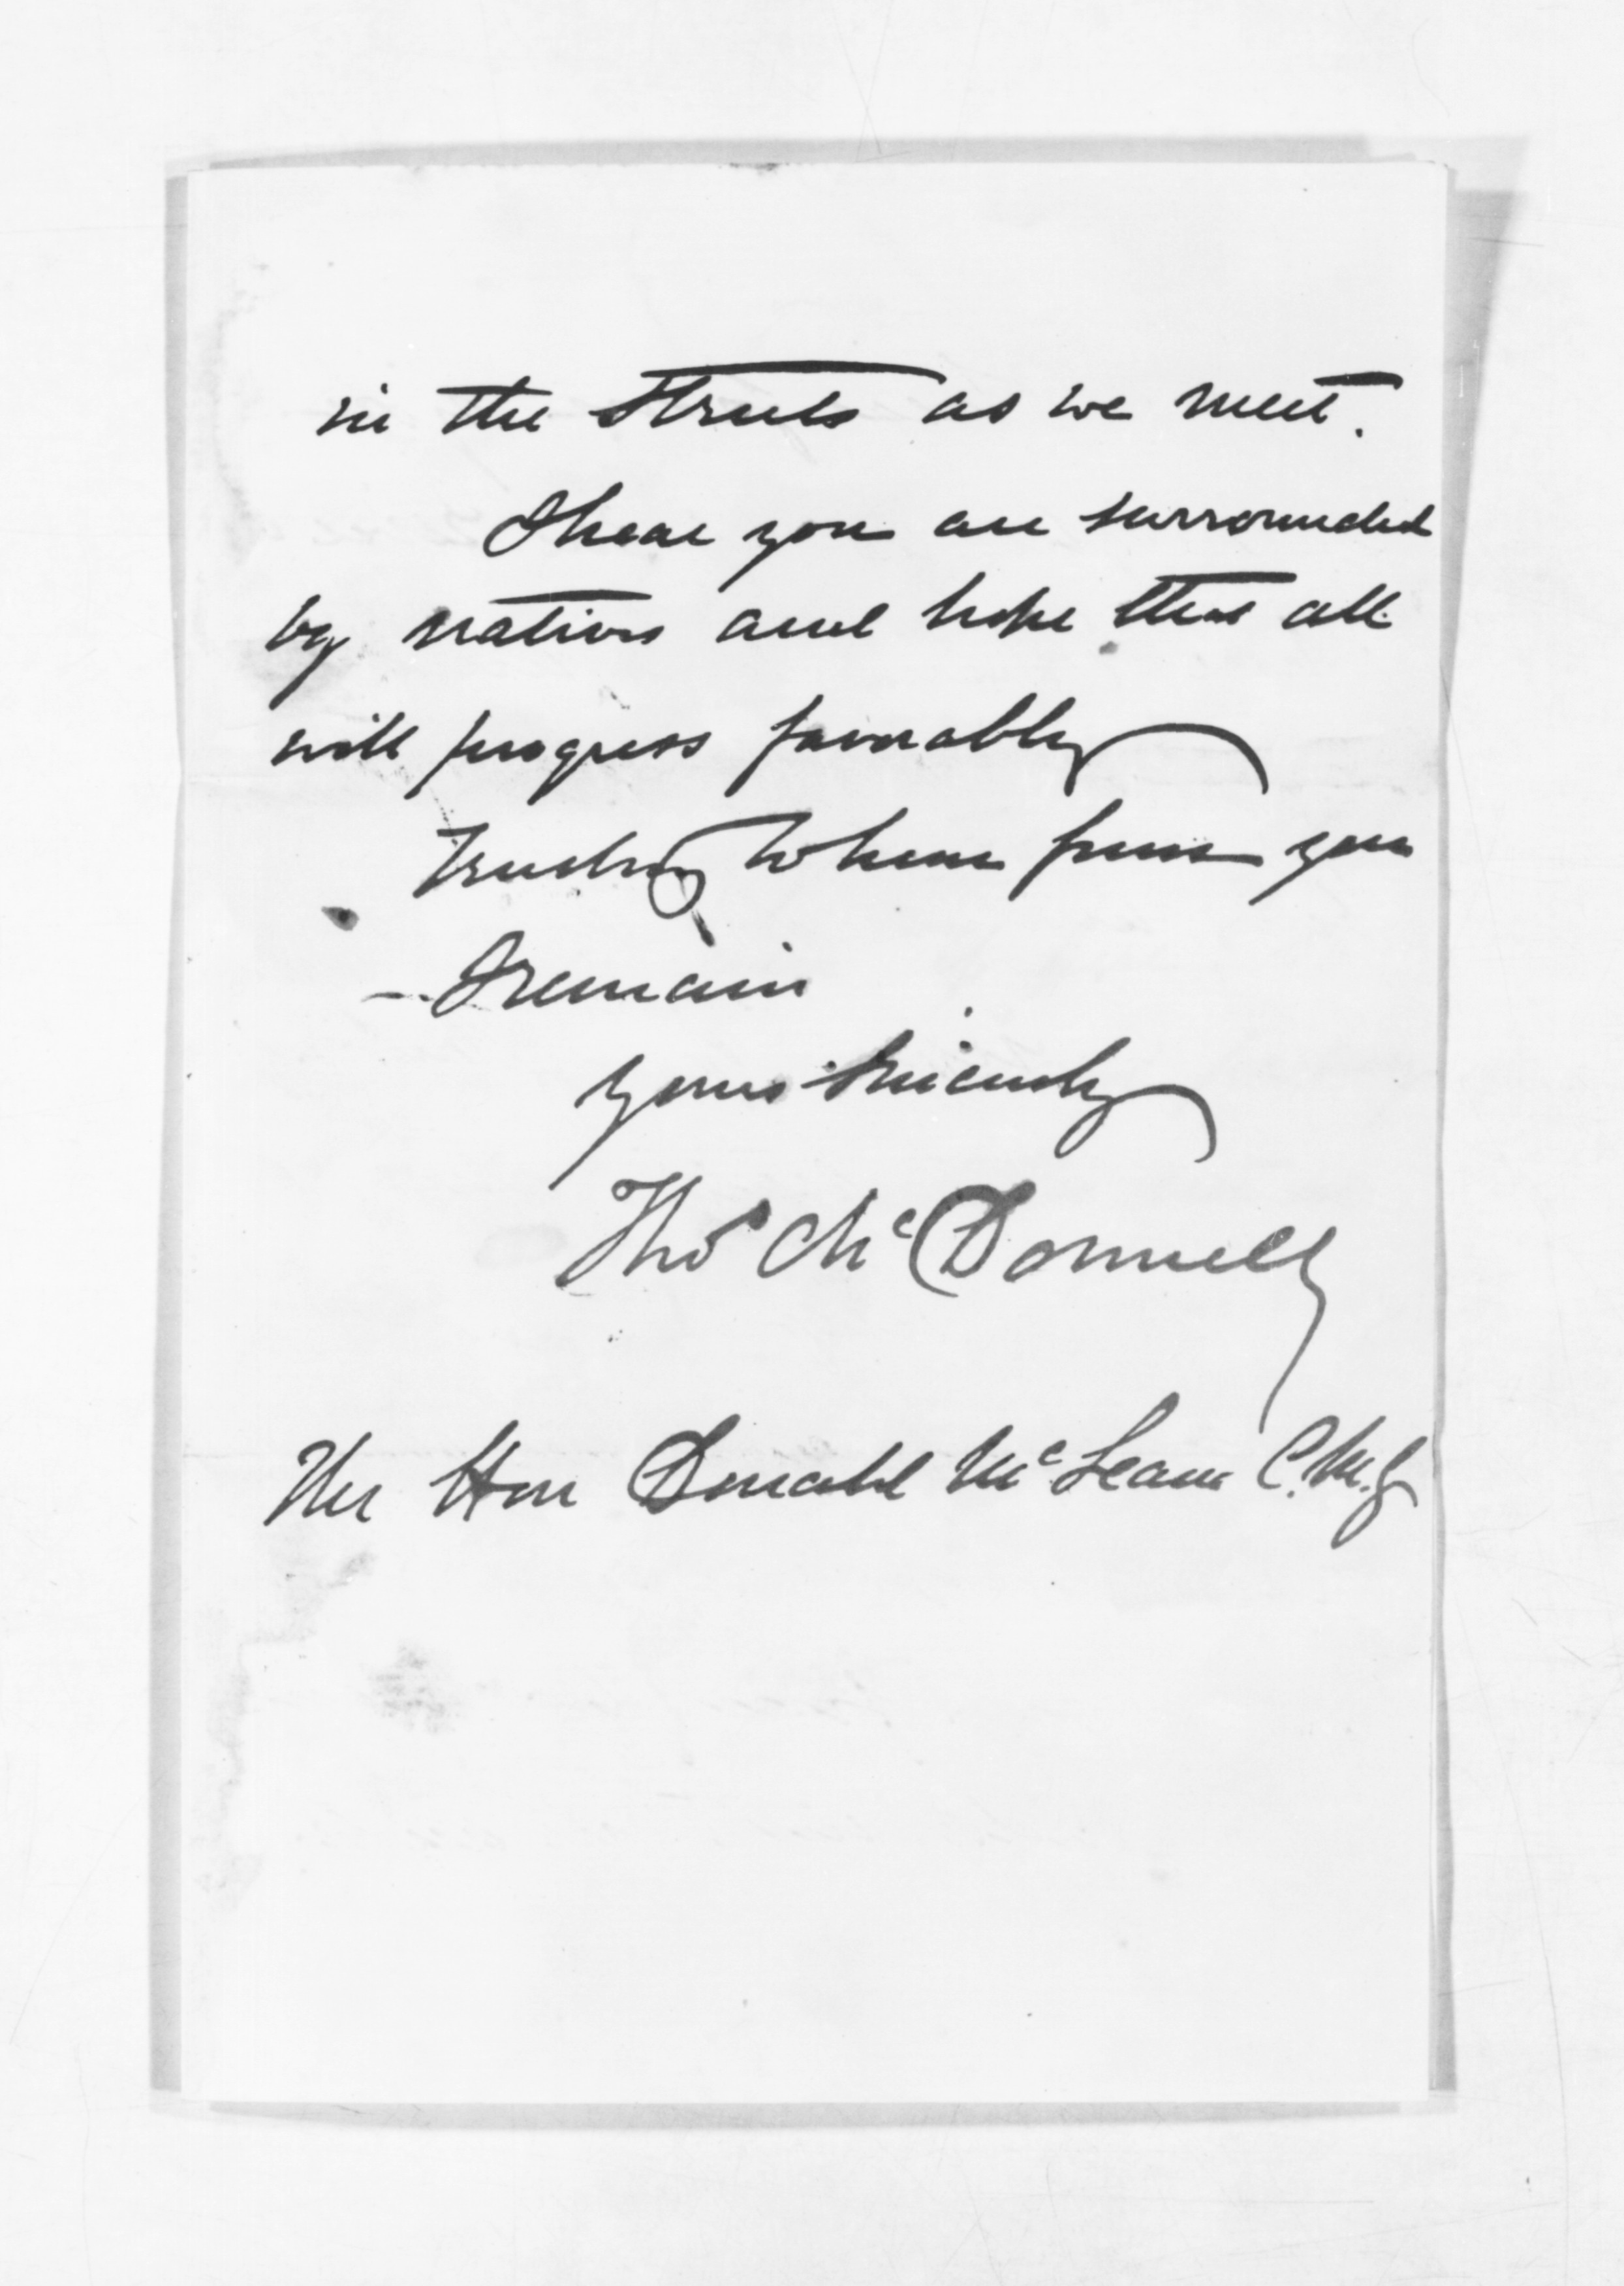 in the Streets as we meet.
I hear you are surrounded
by natives and hope that all
will progress favorably
Trusting to hear from you
I remain
yours sincerely
Thos McDonnell
The Hon Donald McLean C.M.G